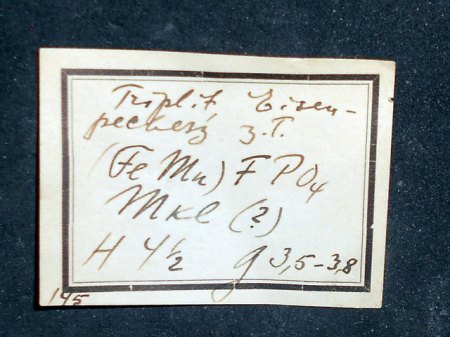 Triplit Eisen-
pecherz z.T.
(Fe Mn) F PO4
Mkl (?)
H 4½ g 3,5-3,8
145